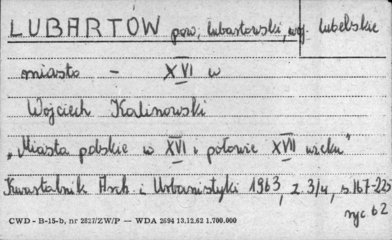 LUBARTÓW pow. lubartowski, woj. lubelskie
miasto - XVI w
Wojciech Kalinowski
„Miasta polskie w XVI i połowie XVII wieku"
Kwartalnik Arch i Urbanistyki 1963, z 3/4, s. 167-225
ryc 62
CWD - B-15-b, nr 2827/ZW/P — WDA 2694 13.12.62 1.700.000